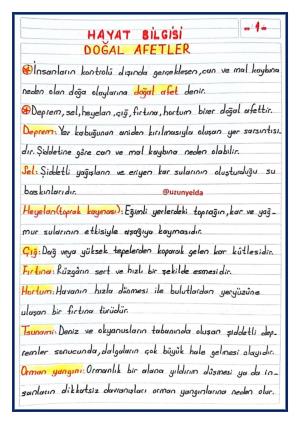 - 1 -
HAYAT BİLGİSİ
DOĞAL AFETLER
İnsanların kontrolü dışında gerçekleşen, can ve mal kaybına
neden olan doğa olaylarına doğal afet denir.
Deprem, sel, heyelan, çığ, fırtına, hortum birer doğal afettir.
Deprem: Yer kabuğunun aniden kırılmasıyla oluşan yer sarsıntısı
dır. Şiddetine göre can ve mal kaybına neden olabilir.
Sel: Şiddetli yağışların ve eriyen kar sularının oluşturduğu su
baskınlarıdır.
@uzunyelda
Heyelan (toprak kayması): Eğimli yerlerdeki toprağın, kar ve yağ-
mur sularının etkisiyle aşağıya kaymasıdır.
Çığ: Dağ veya yüksek tepelerden koparak gelen kar kütlesidir.
Fırtına: Rüzgârın sert ve hızlı bir şekilde esmesidir.
Hortum: Havanın hızla dönmesi ile bulutlardan yeryüzüne
ulaşan bir fırtına türüdür.
Tsunami: Deniz ve okyanusların tabanında oluşan şiddetli dep-
remler sonucunda, dalgaların çok büyük hale gelmesi olayıdır.
Orman yangını: Ormanlık bir alana yıldırım düşmesi ya da in-
sanların dikkatsiz davranışları orman yangınlarına neden olur.